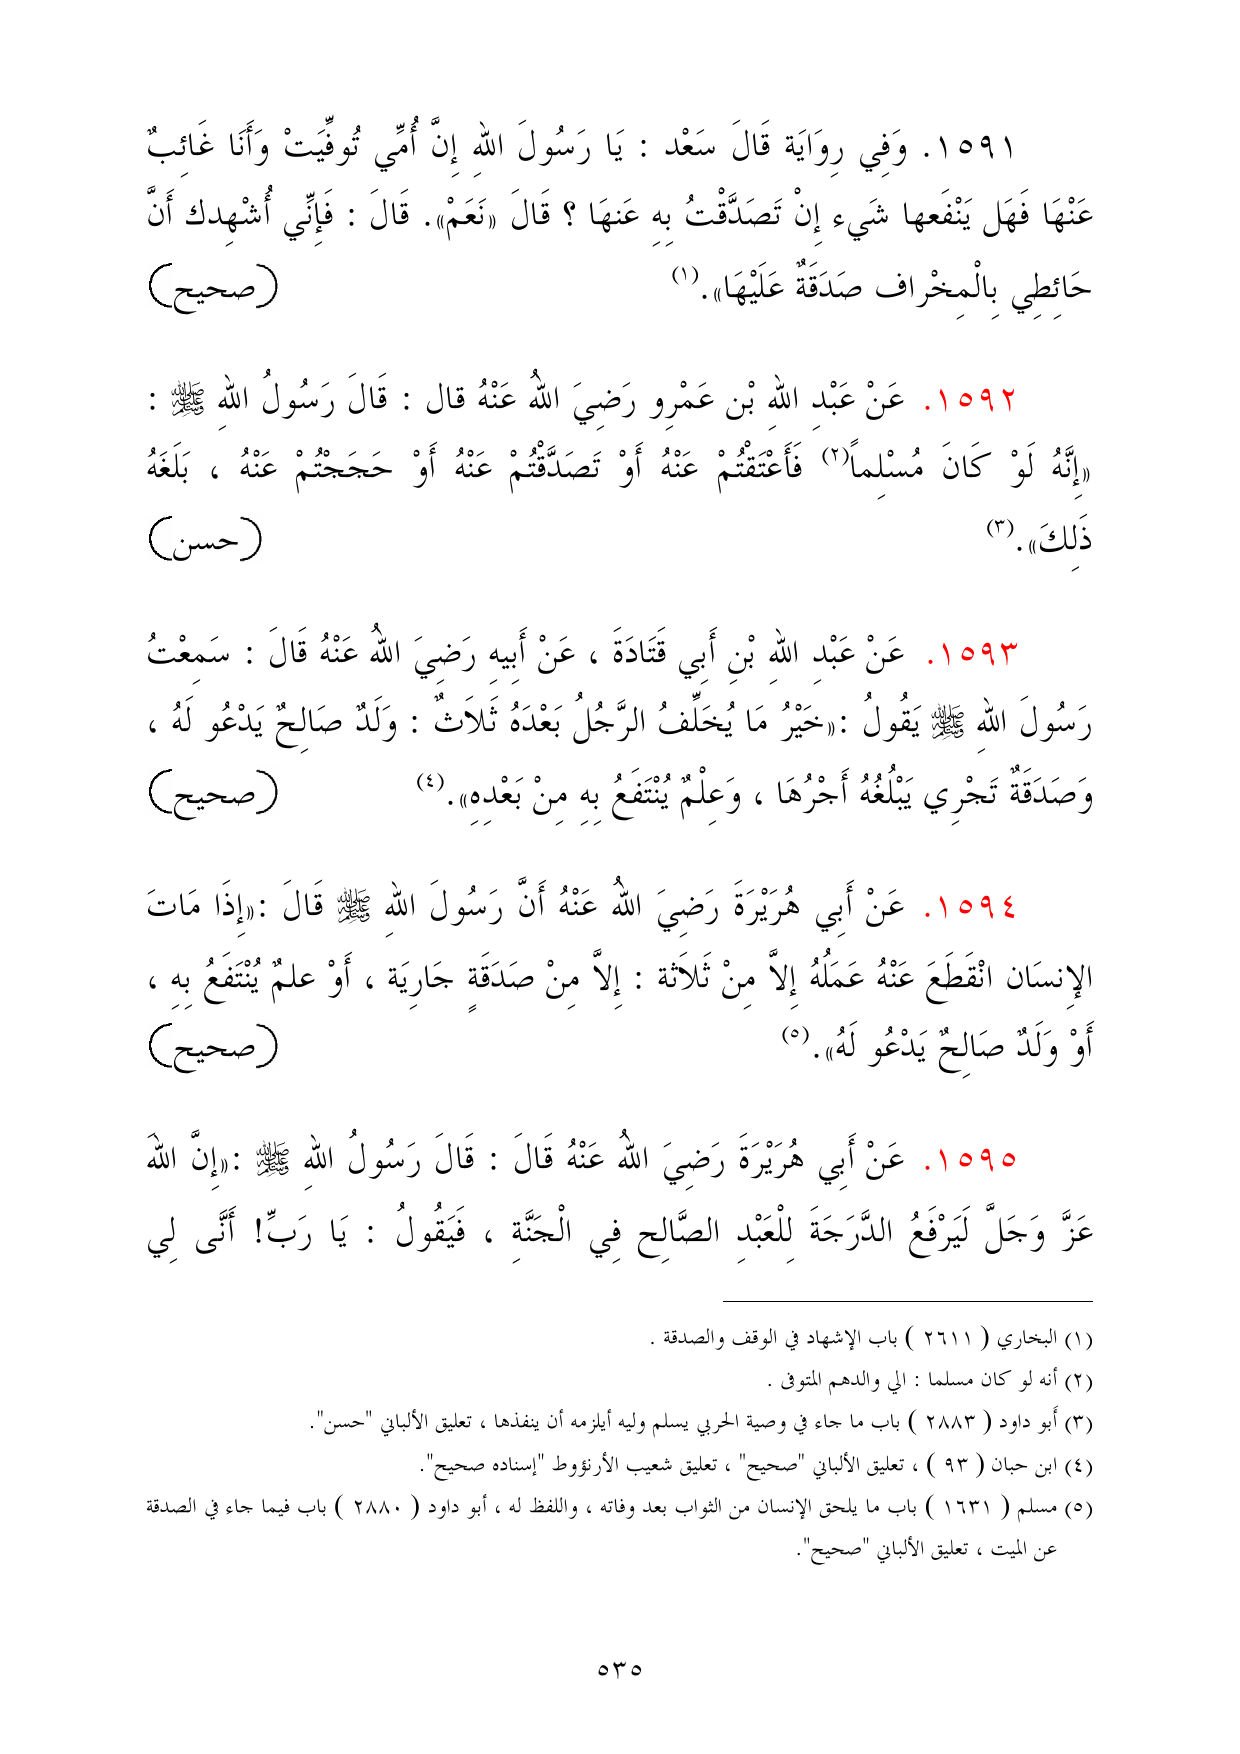 ١٥٩١. وَفِي رِوَايَة قَالَ سَعْد : يَا رَسُولَ اللهِ إِنَّ أُمِّي تُوفِّيَتْ وَأَنَا غَائِبٌ
عَنْهَا فَهَل يَنْفَعها شَيء إِنْ تَصَدَّقْتُ بِهِ عَنهَا ؟ قَالَ «نَعَمْ». قَالَ : فَإِنِّي أُشْهِدك أَنَّ
حَائِطِي بِالْمِخْراف صَدَقَةٌ عَلَيْهَا».(١) (صحيح)
١٥٩٢. عَنْ عَبْدِ اللهِ بْن عَمْرِو رَضِيَ اللهُ عَنْهُ قال : قَالَ رَسُولُ اللهِ ﷺ :
«إِنَّهُ لَوْ كَانَ مُسْلِماً(٢) فَأَعْتَقْتُمْ عَنْهُ أَوْ تَصَدَّقْتُمْ عَنْهُ أَوْ حَجَجْتُمْ عَنْهُ ، بَلَغَهُ
ذَلِكَ».(٣) (حسن)
١٥٩٣. عَنْ عَبْدِ اللهِ بْنِ أَبِي قَتَادَةَ ، عَنْ أَبِيهِ رَضِيَ اللهُ عَنْهُ قَالَ : سَمِعْتُ
رَسُولَ اللهِ ﷺ يَقُولُ :«خَيْرُ مَا يُخَلِّفُ الرَّجُلُ بَعْدَهُ ثَلاَثٌ : وَلَدٌ صَالِحٌ يَدْعُو لَهُ ،
وَصَدَقَةٌ تَجْرِي يَبْلُغُهُ أَجْرُهَا ، وَعِلْمٌ يُنْتَفَعُ بِهِ مِنْ بَعْدِهِ».(٤) (صحيح)
١٥٩٤. عَنْ أَبِي هُرَيْرَةَ رَضِيَ اللهُ عَنْهُ أَنَّ رَسُولَ اللهِ ﷺ قَالَ :«إِذَا مَاتَ
الإِنسَان انْقَطَعَ عَنْهُ عَمَلُهُ إِلاَّ مِنْ ثَلاَثة : إِلاَّ مِنْ صَدَقَةٍ جَارِيَة ، أَوْ علمٌ يُنْتَفَعُ بِهِ ،
أَوْ وَلَدٌ صَالِحٌ يَدْعُو لَهُ».(٥) (صحيح)
١٥٩٥. عَنْ أَبِي هُرَيْرَةَ رَضِيَ اللهُ عَنْهُ قَالَ : قَالَ رَسُولُ اللهِ ﷺ :«إِنَّ اللهَ
عَزَّ وَجَلَّ لَيَرْفَعُ الدَّرَجَةَ لِلْعَبْدِ الصَّالِحِ فِي الْجَنَّةِ ، فَيَقُولُ : يَا رَبِّ! أَنَّى لِي
(١) البخاري ( ٢٦١١ ) باب الإشهاد في الوقف والصدقة .
(٢) أنه لو كان مسلما : الي والدهم المتوفى .
(٣) أَبو داود ( ٢٨٨٣ ) باب ما جاء في وصية الحربي يسلم وليه أيلزمه أن ينفذها ، تعليق الألباني "حسن".
(٤) ابن حبان ( ٩٣ ) ، تعليق الألباني "صحيح" ، تعليق شعيب الأرنؤوط "إسناده صحيح".
(٥) مسلم ( ١٦٣١ ) باب ما يلحق الإنسان من الثواب بعد وفاته ، واللفظ له ، أبو داود ( ٢٨٨٠ ) باب فيما جاء في الصدقة
عن الميت ، تعليق الألباني "صحيح".
٥٣٥